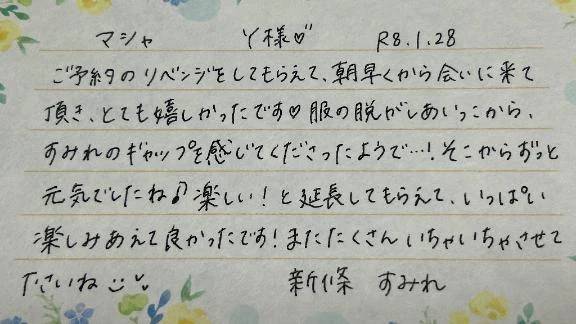 マシャ Y様♡ R8.1.28
ご予約のリベンジをしてもらえて、朝早くから会いに来て
頂き、とても嬉しかったです♡服の脱がしあいっこから、
すみれのギャップを感じてくださったようで…!そこからずっと
元気でしたね♪楽しい!と延長してもらえて、いっぱい
楽しみあえて良かったです!またたくさんいちゃいちゃさせて
ださいね 新條 すみれ